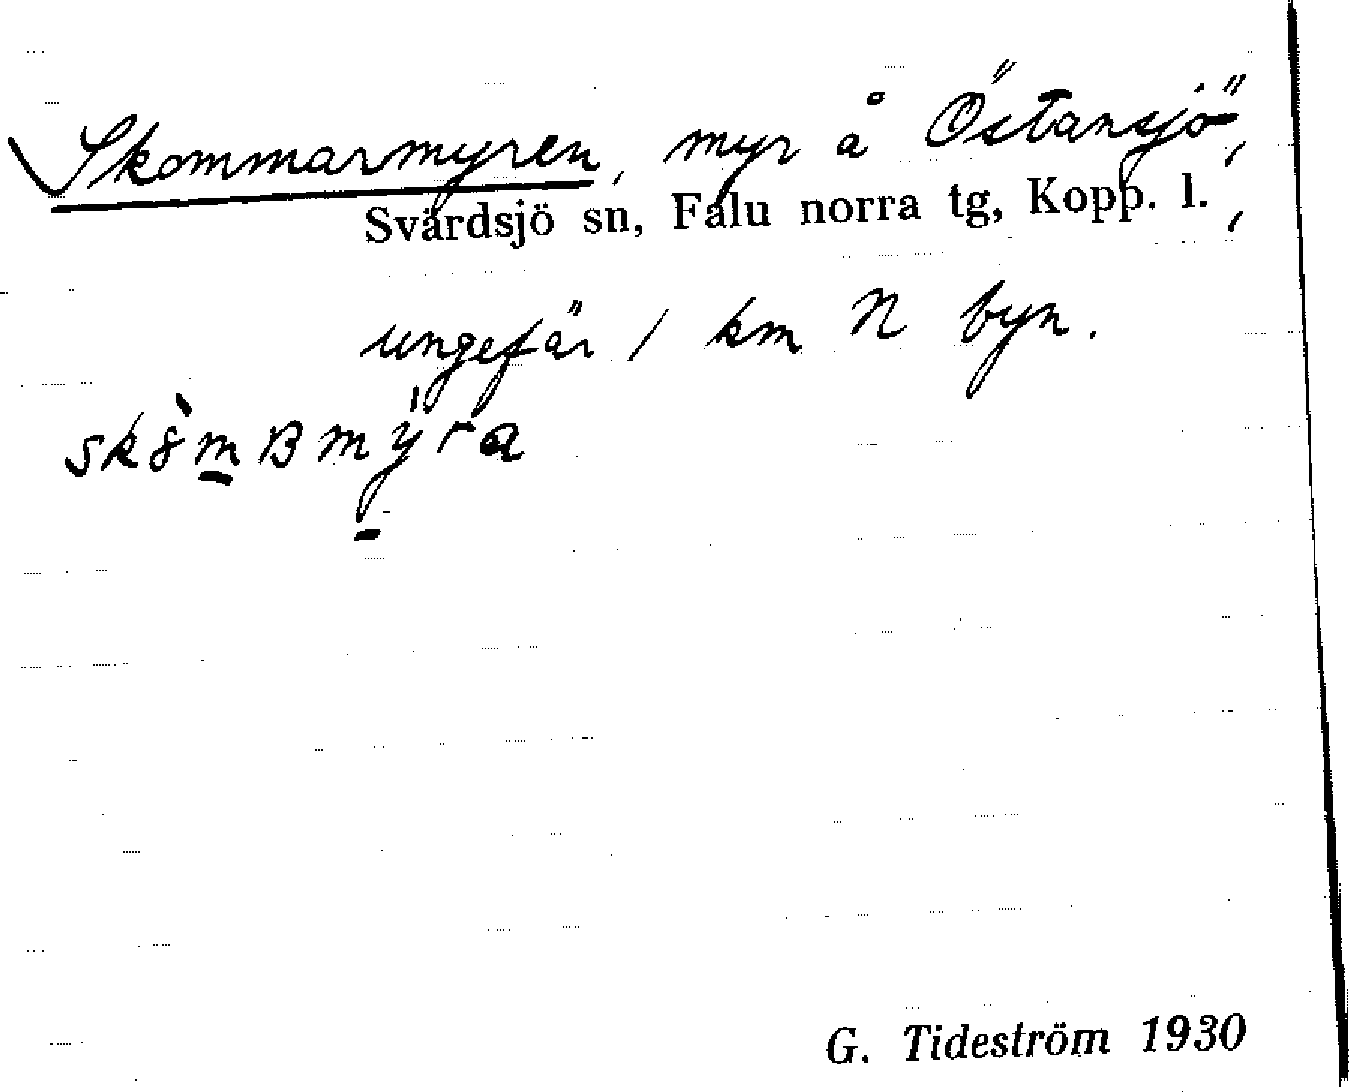 Skommarmyren, myr å Östansjö,
Svärdsjö sn, Falu norra tg, Kopp. l.,
ungefär 1 km N byn.
G. Tideström 1930